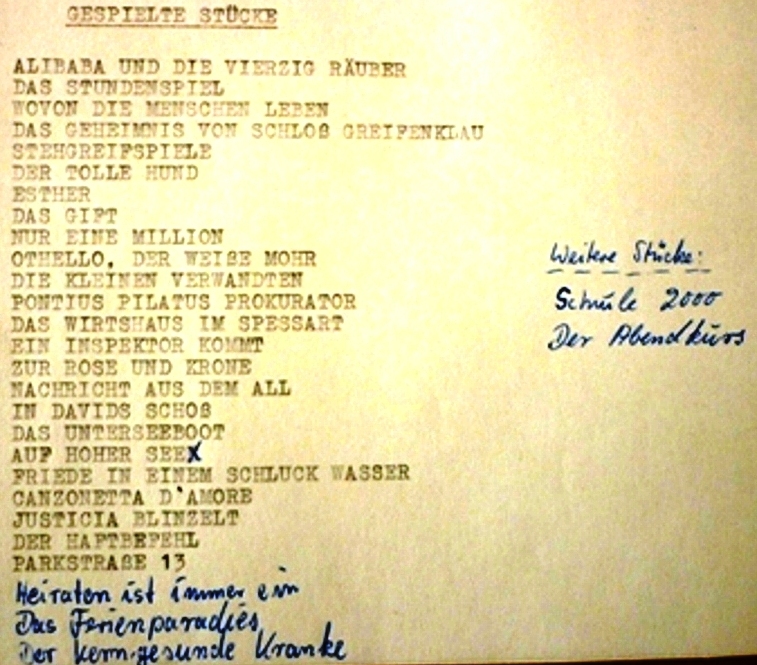 GESPIELTE STÜCKE
ALIBABA UND DIE VIERZIG RÄUBER
DAS STUNDENSPIEL
WOVON DIE MENSCHEN LEBEN
DAS GEHEIMNIS VON SCHLOß GREIFENKLAU
STEHGREIFSPIELE
DER TOLLE HUND
ESTHER
DAS GIFT
NUR EINE MILLION
OTHELLO, DER WEIßE MOHR
DIE KLEINEN VERWANDTEN
PONTIUS PILATUS PROKURATOR
DAS WIRTSHAUS IM SPESSART
EIN INSPEKTOR KOMMT
ZUR ROSE UND KRONE
NACHRICHT AUS DEM ALL
IN DAVIDS SCHOß
DAS UNTERSEEBOOT
AUF HOHER SEEX
FRIEDE IN EINEM SCHLUCK WASSER
CANZONETTA D'AMORE
JUSTICIA BLINZELT
DER HAFTBEFEHL
PARKSTRAßE 13
Heiraten ist immer ein
Das Ferienparadies
Der kern-gesunde Kranke
Weitere Stücke:
Schule 2000
Der Abendkurs